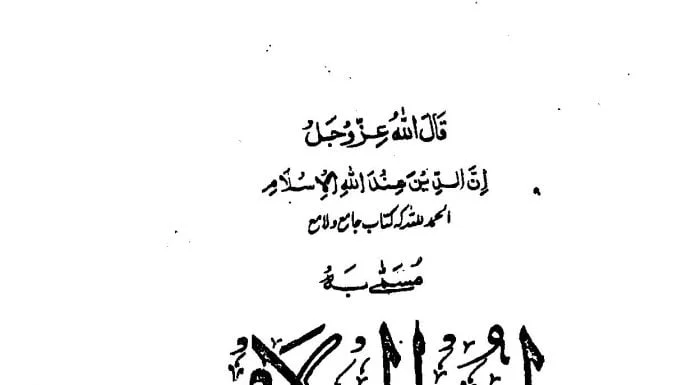 قَالَ اللهُ عِزّوُجَلُ
اِنَّ الدِّيْنَ عِنْدَ اللهِ الْاِسْلَامِ
الحمد للہ کہ کتاب جامع و لامع
مُسَمّٰی بَہٗ